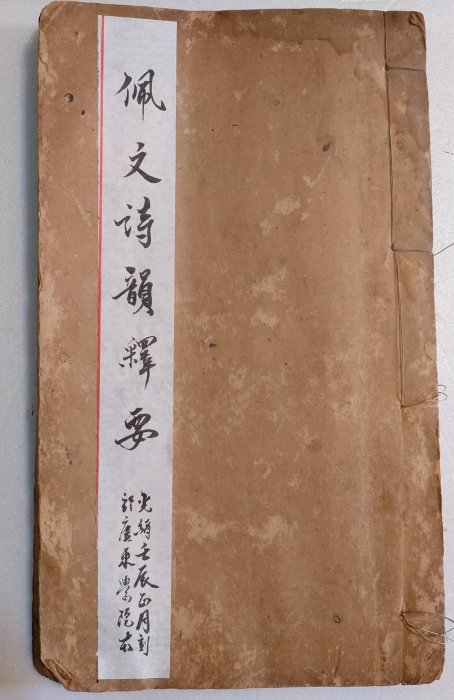 佩文詩韻釋要
光緒壬辰正月刻
於廣東學院本